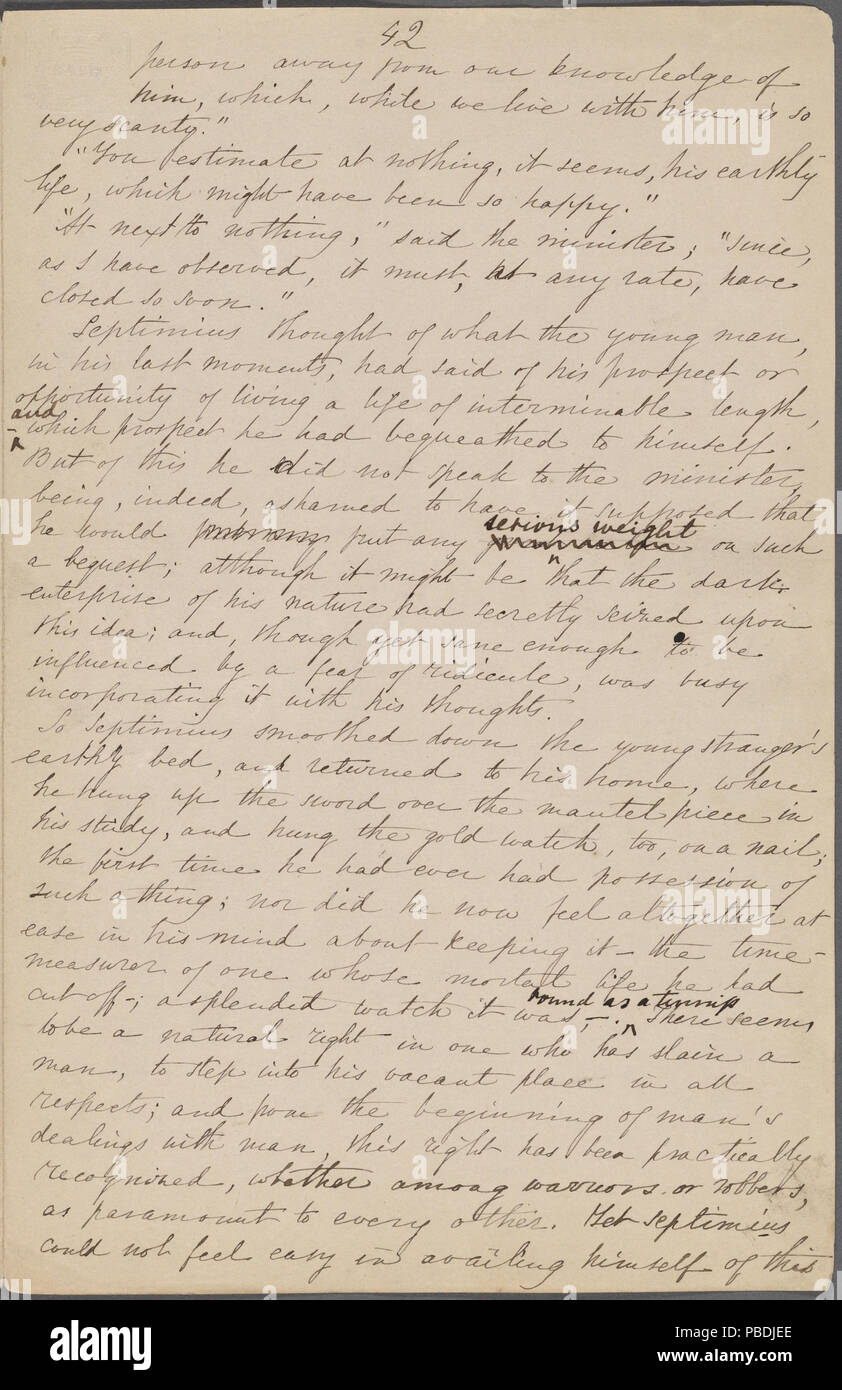 42
person away from our knowledge of
him, which, while we live with him, is so
very scanty."
"You estimate at nothing, it seems, his earthly
life, which might have been so happy."
"At next to nothing," said the minister; "since,
as I have observed, it must, at any rate, have
closed so soon."
Septimius thought of what the young man,
in his last moments, had said of his prospect or
opportunity of living a life of interminable length,
and
- which prospect he had bequeathed to himself.
But of this he did not speak to the minister,
being, indeed, ashamed to have it supposed that
serious weight
he would put any on such
a bequest; although it might be that the dark
enterprise of his nature had secretly seized upon
this idea; and, though yet sane enough to be
influenced by a fear of ridicule, was busy
incorporating it with his thoughts.
So Septimius smoothed down the young stranger's
earthly bed, and returned to his home, where
he hung up the sword over the mantel piece in
his study, and hung the gold watch, too, on a nail;
the first time he had ever had possession of
such a thing; nor did he now feel altogether at
ease in his mind about keeping it - the time-
measurer of one whose mortal life he had
round as a turnip
cut off-; a splendid watch it was, -. There seems
to be a natural right in one who has slain a
man, to step into his vacant place in all
respects; and from the beginning of man's
dealings with man, this right has been practically
recognized, whether among warriors or robbers,
as paramount to every other. Yet Septimius
could not feel easy in availing himself of this
alamy
Image ID: PBDJEE
www.alamy.com